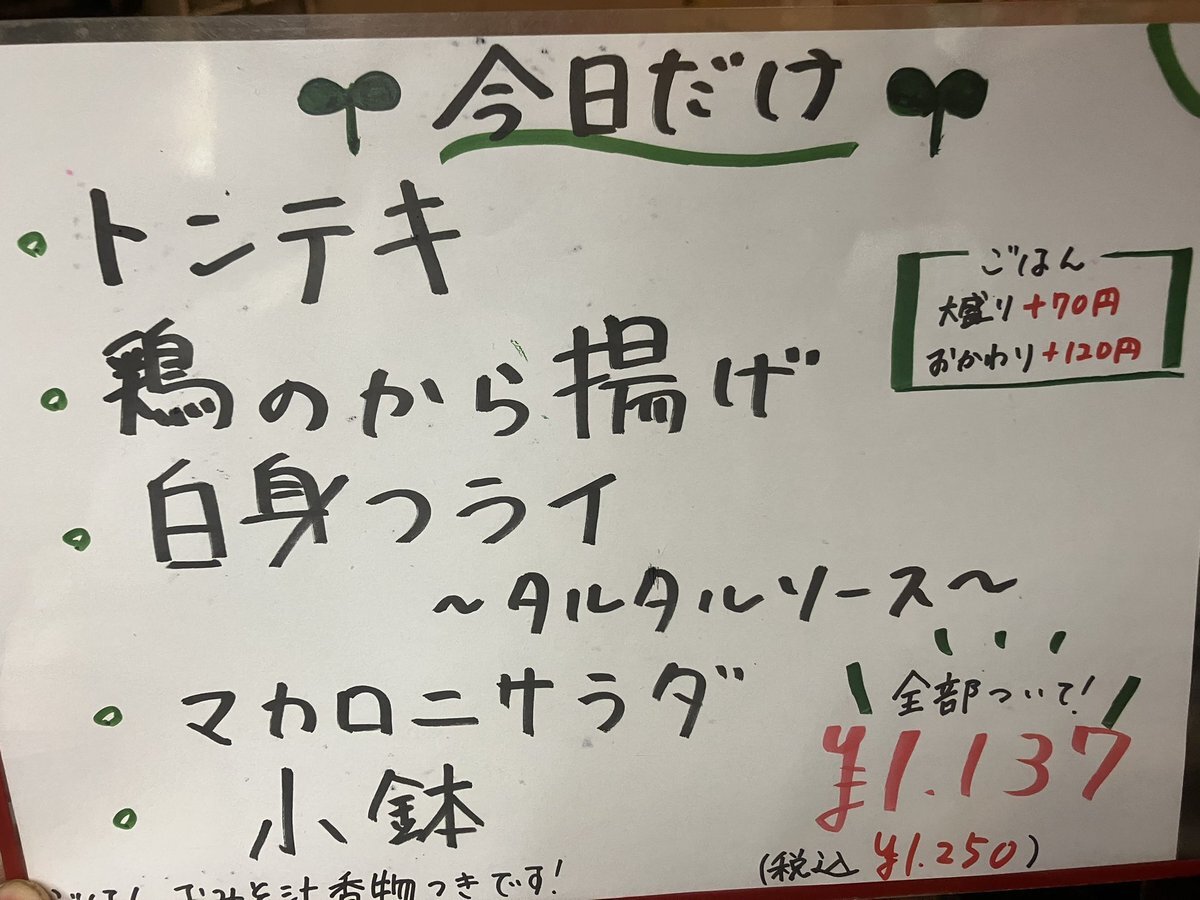 今日だけ
トンテキ
ごはん
大盛り +70円
おかわり +120円
鶏のから揚げ
白身フライ
~タルタルソース~
マカロニサラダ
小鉢
全部ついて!
¥1.137
(税込 ¥1.250)
ごはん おみそ汁 香物つきです!